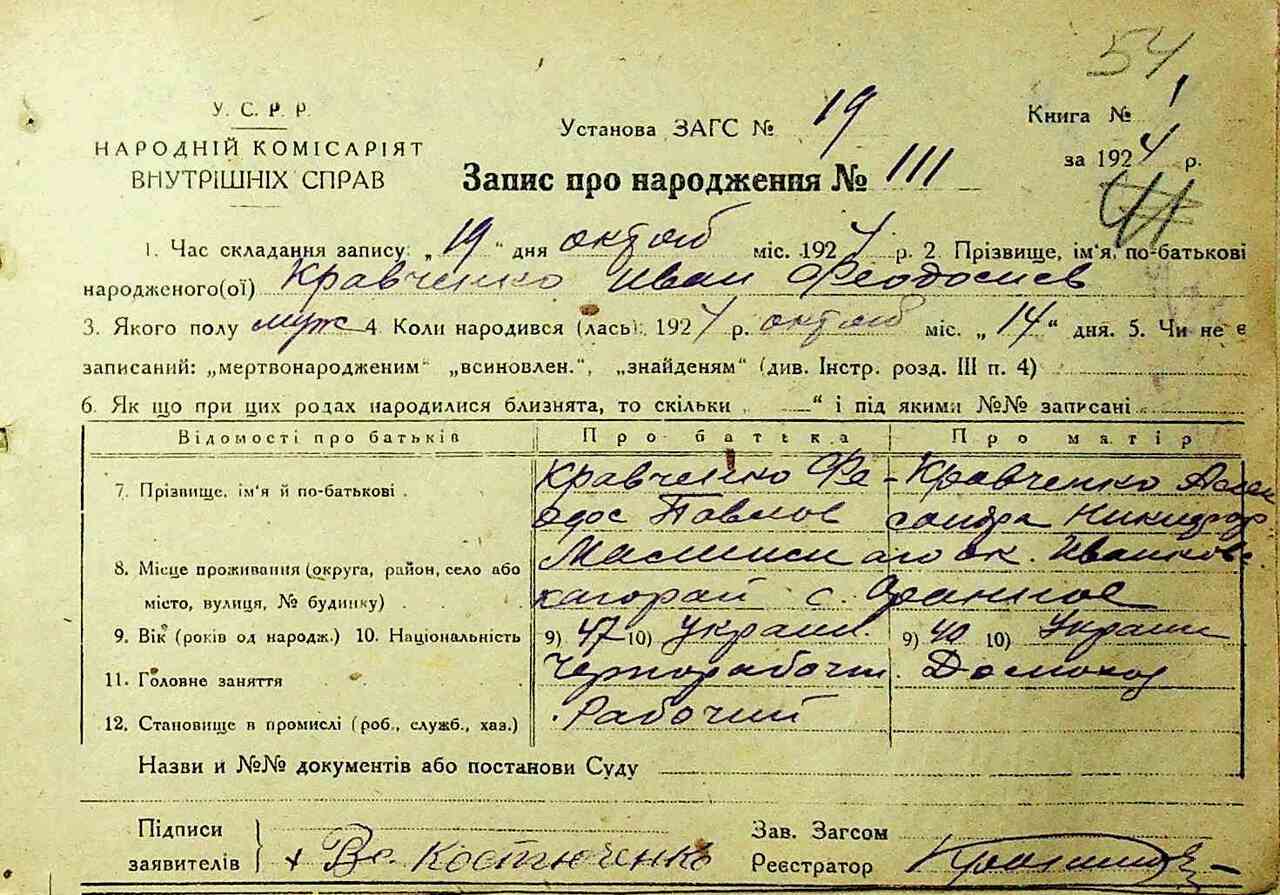 54
У. С. Р. Р.
НАРОДНІЙ КОМІСАРІЯТ
ВНУТРІШНІХ СПРАВ
Установа ЗАГС № 19
Книга № 1
за 1924 р.
Запис про народження № 111
1. Час складання запису: „19“ дня октяб міс. 1924 р. 2. Прізвище, ім'я, по-батькові
народженого(ої) Кравченко Иван Феодосиев
3. Якого полу муж 4. Коли народився (лась): 1924 р. октяб міс. „14“ дня. 5. Чи не є
записаний: „мертвонародженим“ „всиновлен.“, „знайденям“ (див. Інстр. розд. III п. 4)
6. Як що при цих родах народилися близнята, то скільки „ —“ і під якими №№ записані
Відомості про батьків Про батька Про матір
7. Прізвище, ім'я й по-батькові . Кравченко Фе- Кравченко Алек
одос Павлов сандра Никифор
8. Місце проживання (округа, район, село або ок. Иванковс
місто, вулиця, № будинку) . . с.
9. Вік (років од народж.) 10. Національність 9) 47 10) Украин. 9) 40 10) Украин
11. Головне заняття Чернорабочи. Домохоз
12. Становище в промислі (роб., служб., хаз.) Рабочий
Назви и №№ документів або постанови Суду
Підписи
заявителів } + Костюченко
Зав. Загсом
Реєстратор